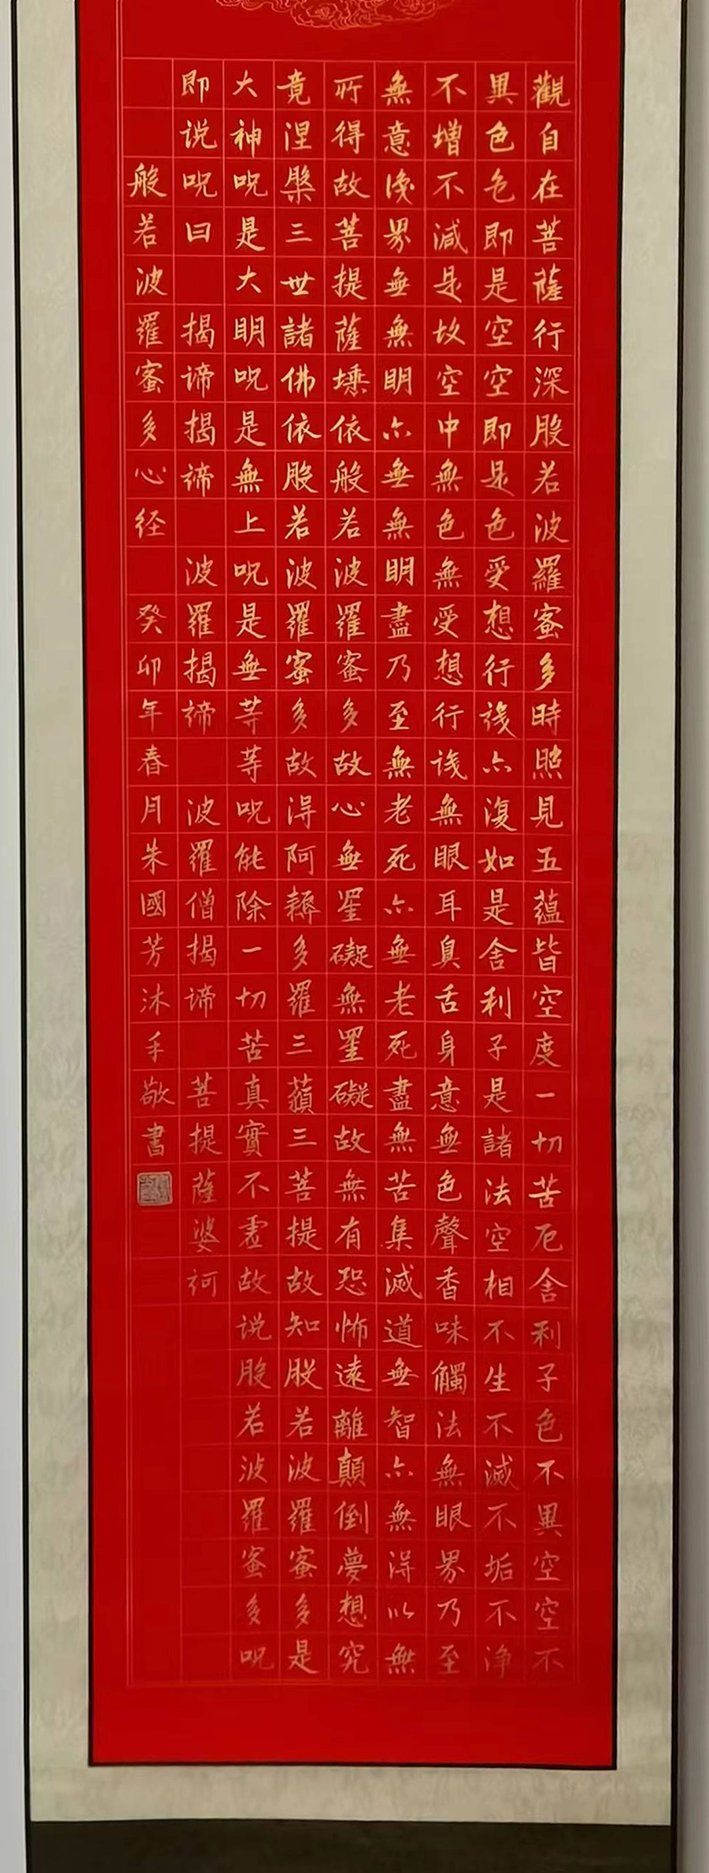 觀自在菩薩行深般若波羅蜜多時照見五蘊皆空度一切苦厄舍利子色不異空空不
異色色即是空空即是色受想行識亦復如是舍利子是諸法空相不生不滅不垢不净
不增不減是故空中無色無受想行識無眼耳鼻舌身意無色聲香味觸法無眼界乃至
無意識界無無明亦無無明盡乃至無老死亦無老死盡無苦集滅道無智亦無得以無
所得故菩提薩埵依般若波羅蜜多故心無罣礙無罣礙故無有恐怖遠離顛倒夢想究
竟涅槃三世諸佛依般若波羅蜜多故得阿耨多羅三藐三菩提故知般若波羅蜜多是
大神呪是大明呪是無上呪是無等等呪能除一切苦真實不虛故说般若波羅蜜多呪
即说呪曰 揭諦揭諦 波羅揭諦 波羅僧揭諦 菩提薩婆訶
般若波羅蜜多心经 癸卯年春月朱國芳沐手敬書